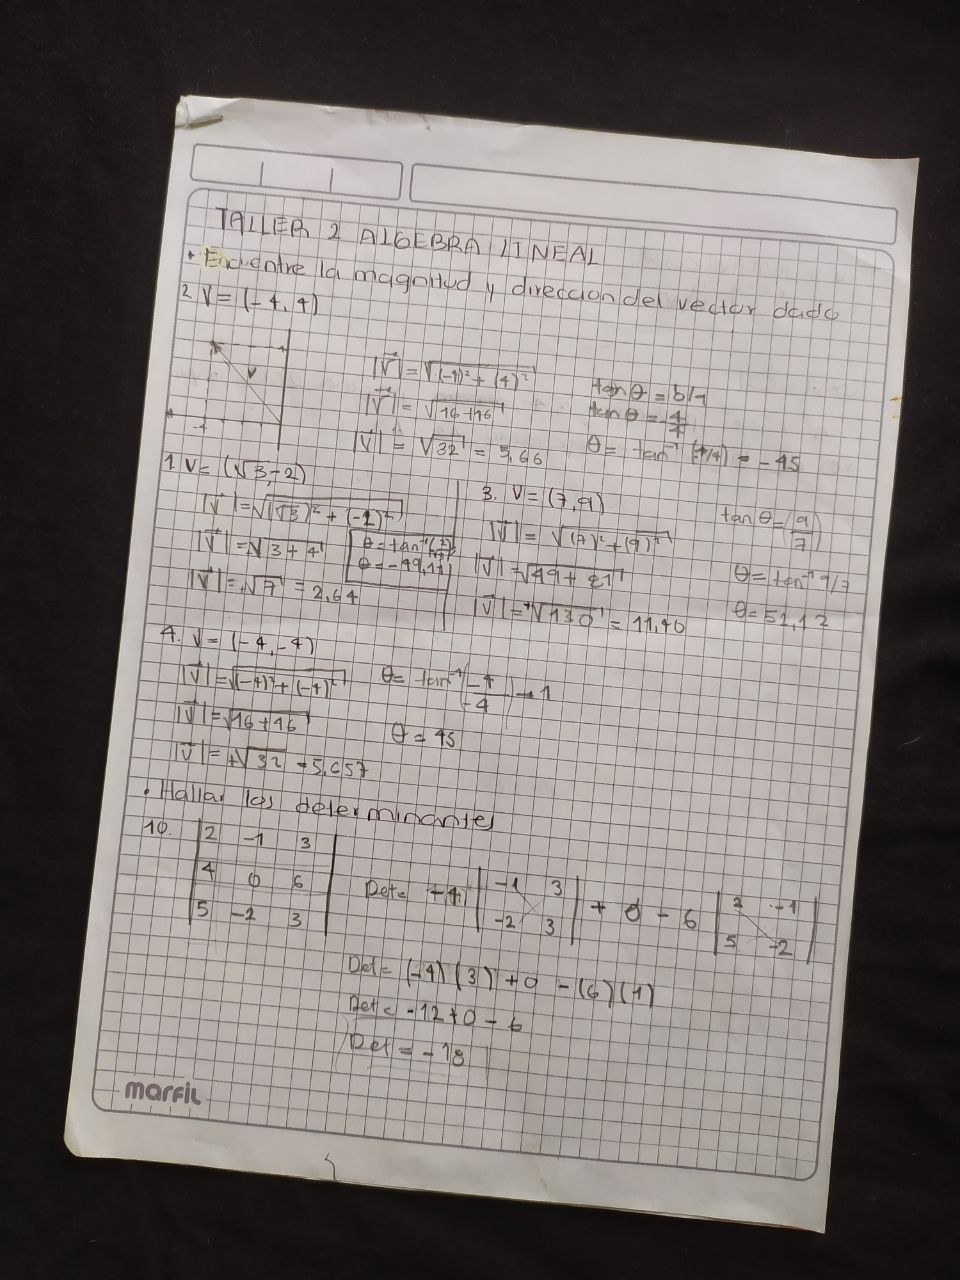 TALLER 2 ALGEBRA LINEAL
• Encuentre la magnitud y direccion del vector dado
2 V = (-4, 4)
V
-4
|V| = √(-4)² + (4)²
|V| = √16+16
|V| = √32 = 5,66
tan θ = b/a
tan θ = 4/4
θ = tan⁻¹ (4/4) = -45
1. V = (√3, -2)
|V| = √(√3)² + (-2)²
|V| = √3 + 4
|V| = +√7 = 2,64
θ = tan⁻¹
θ = -49,11
3. V = (7, 9)
|V| = √(7)² + (9)²
|V| = √49 + 81
|V| = +√130 = 11,40
tan θ = (9/7)
θ = tan⁻¹ 9/7
θ = 52,12
4. V = (-4, -4)
|V| = √(-4)² + (-4)²
|V| = √16 + 16
|V| = +√32 = 5,657
θ = tan⁻¹ (-4/-4) → 1
θ = 45
• Hallar los determinantes
10.
2 -1 3
4 0 6
5 -2 3
Det = -4 | -1 3 | + 0 - 6 | 2 -1 |
-2 3 5 -2
Det = (-4) (3) + 0 - (6) (1)
Det = -12 + 0 - 6
Det = -18
marfil